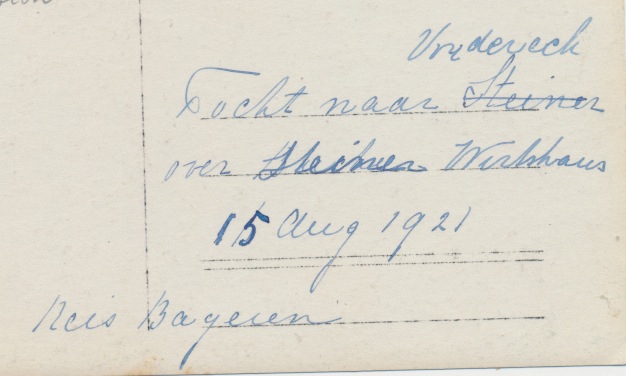 Vordereck
Tocht naar Steiner
over Steiner Wirthhaus
15 Aug 1921
Reis Bayeren